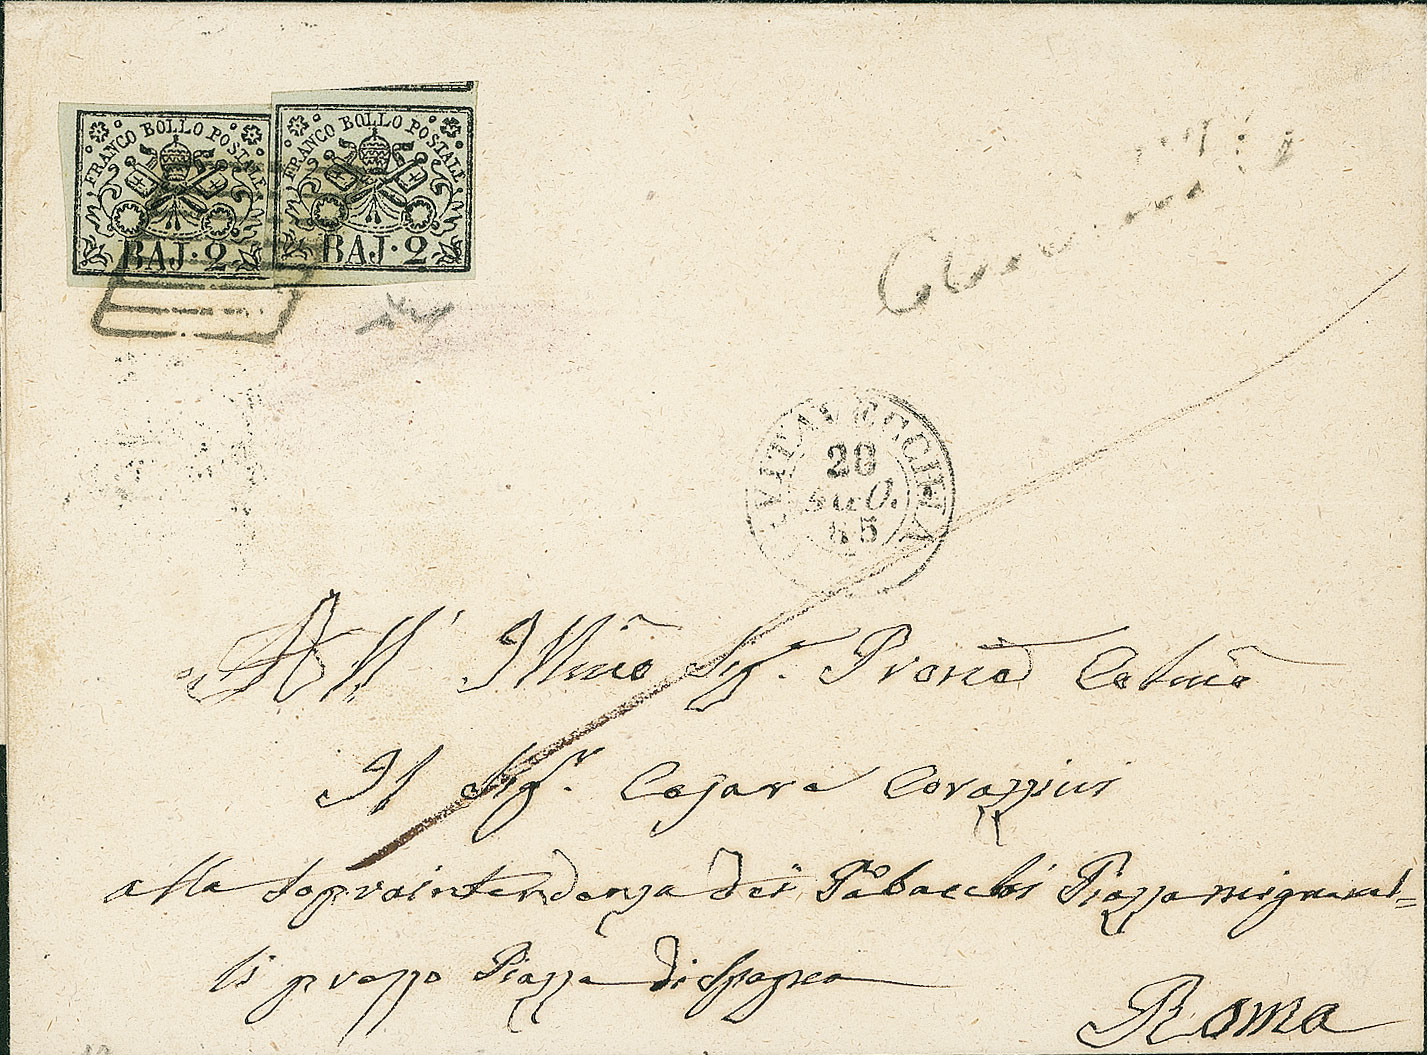 FRANCO BOLLO POSTALE
BAJ·2
FRANCO BOLLO POSTALE
BAJ·2
CIVITAVECCHIA
28
AGO.
55
All' Illmo Sigr. Prone Colmo
Il Sigr. Cesare Corazzini
alla Soprointendenza dei Tabacchi Piazza Mignanel=
li prezzo Piazza di Spagna
Roma